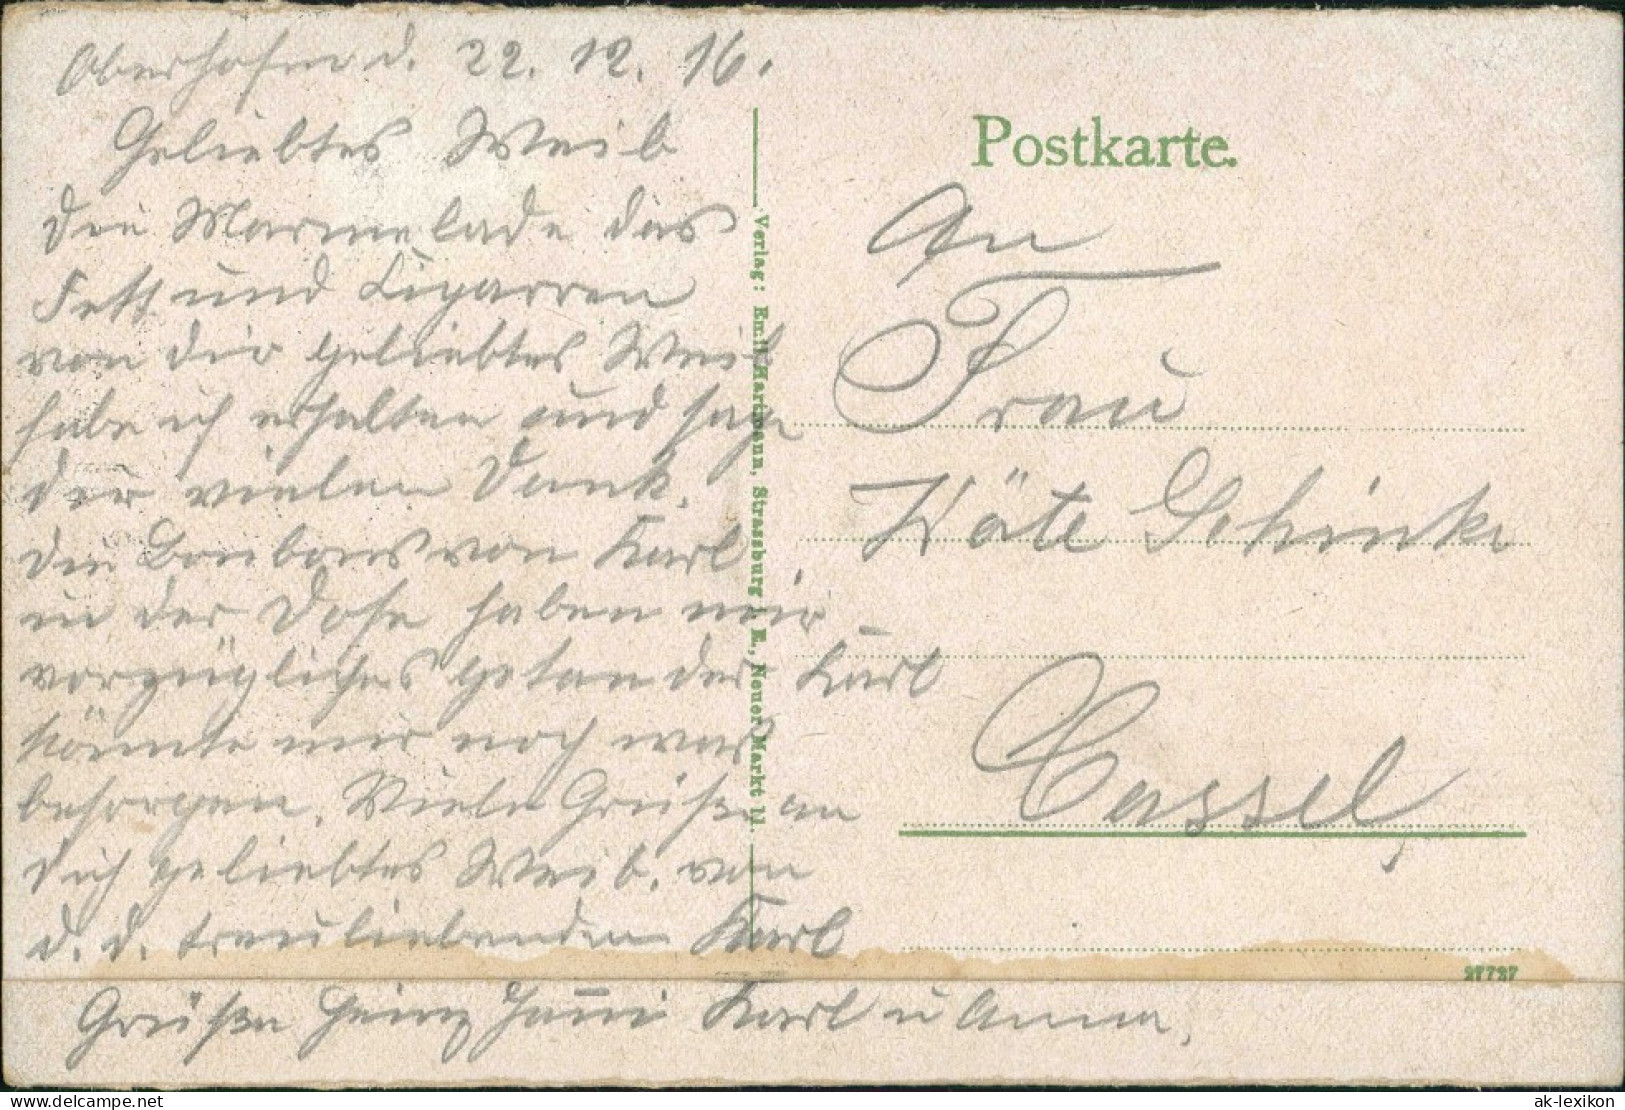 Oberhofen d. 22. 12. 16.
Geliebtes Weib
Die Marmelade das
Fett und Zigarren
von dir geliebtes Weib
habe ich erhalten und sage
dir vielen Dank.
die Bonbons von Karl
in der Dose haben mir
vorzügliches getan der Karl
könnte mir noch was
besorgen. Viele Grüße an
dich geliebtes Weib. von
d. d. treuliebenden Karl
Grüße Heinz Hanni Karl u Anna,
Postkarte.
An
Frau
Käte Schinke
Cassel,
Verlag: Emil Hartmann, Strassburg i. E., Neuer Markt 11.
27727
© oldthing.de
ak-lexikon